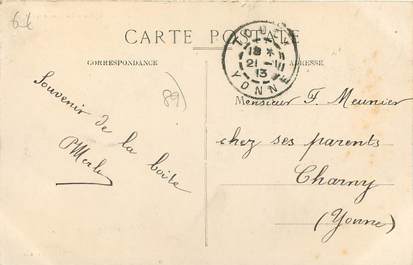 6 €
CARTE POSTALE
CORRESPONDANCE
ADRESSE
TOUCY
18 *
21 - 
13
YONNE
89
Souvenir de
la boite
P Merle
Monsieur F. Meunier
chez ses parents
Charny
(Yonne)